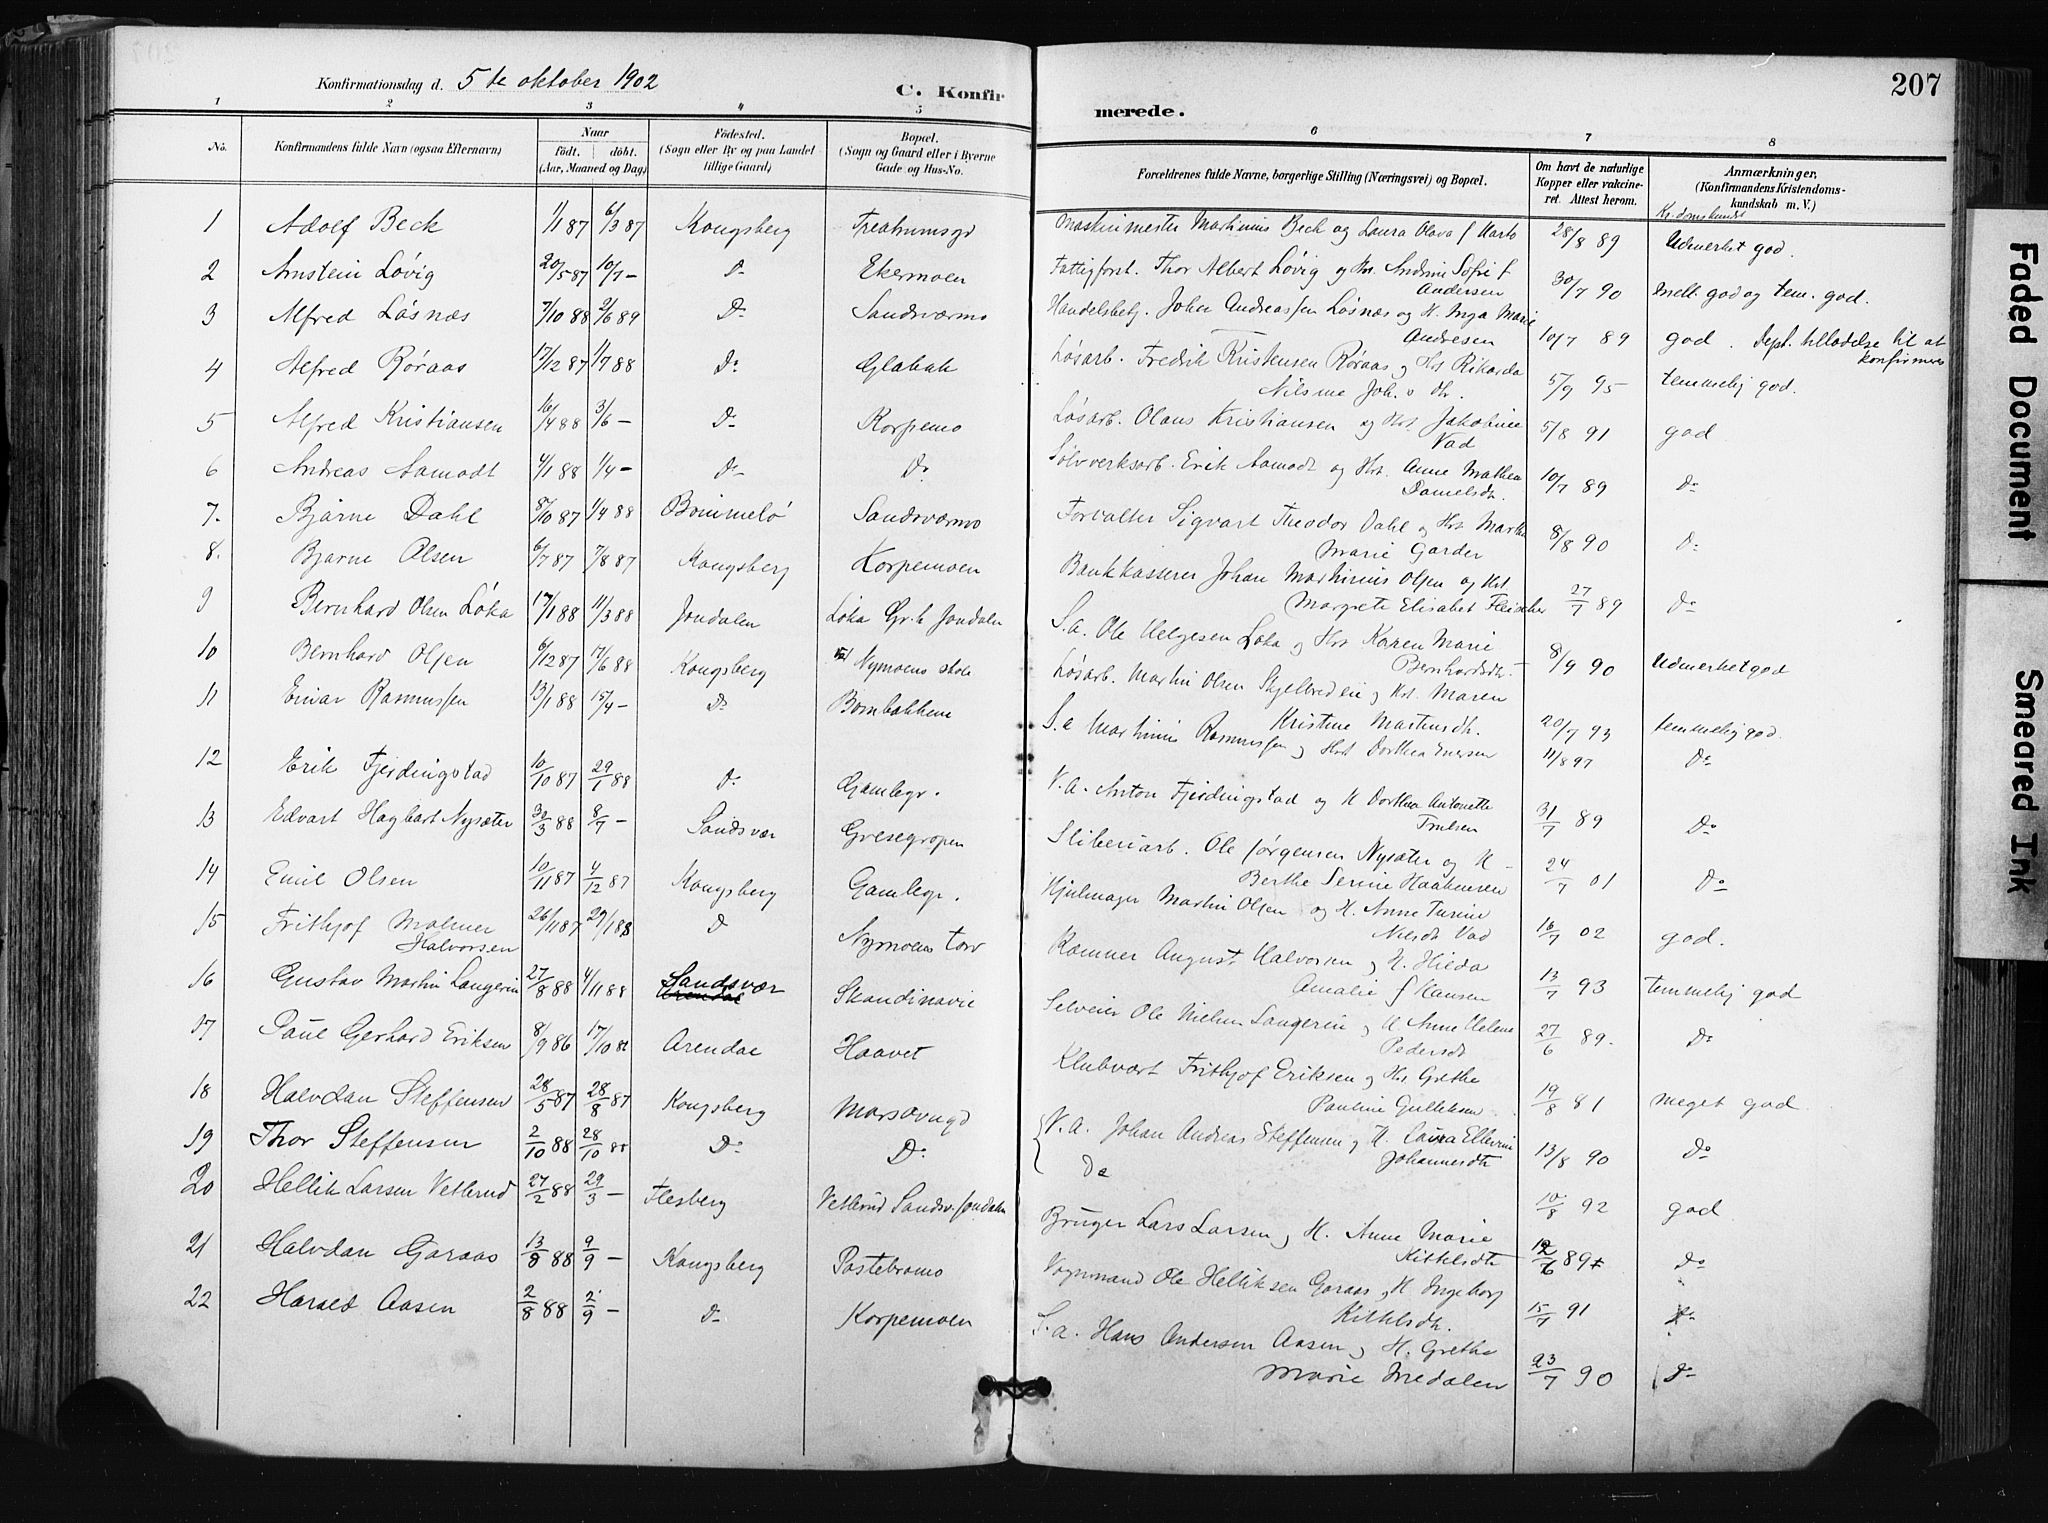 207
Konfirmationsdag d. 5 te oktober 1902
C. Konfirmerede.
1 2 3 4 5 6 7 8
No.
Konfirmandens fulde Navn (ogsaa Efternavn)
Naar
født. døbt.
(Aar, Maaned og Dag)
Fødested.
(Sogn eller By og paa Landet tillige Gaard)
Bopæl.
(Sogn og Gaard eller i Byerne Gade og Hus-No.
Forældrenes fulde Navne, borgerlige Stilling (Næringsvei) og Bopæl.
Om havt de naturlige Kopper eller vakcineret. Attest herom.
Anmærkninger,
(Konfirmandens Kristendomskundskab m. V.)
Kr.domskundsk
1 Adolf Beck 1/1 87 6/3 87 Kongsberg Maskinmester Martinius Beck og Laura Olava f 28/8 89 Udmerket god.
2 Arnstein Løvig 20/5 87 10/7 – Do Ekermoen Fattigforst. Thor Albert Løvig og Andrine Sofie f Andersen 30/7 90 Mell. god og tem. god.
3 Alfred Løsnæs 7/10 88 2/6 89 Do Sandsværmo Handelsbetj. Johan Andreassen Løsnæs og H. Inga Marie Andresen 10/7 89 god. Dept. tilladelse til at konfirmeres
4 Alfred Røraas 17/12 87 1/7 88 Do Glabak Løsarb. Fredrik Kristensen Røraas og Hst Rikarda Nilsine Joh. 5/9 95 temmelig god.
5 Alfred Kristiansen 16/4 88 3/6 – Do Korpemo Løsarb. Olaus Kristiansen og Hst. Jakobine Vad 5/8 91 god
6 Andreas Aamodt 4/1 88 1/4 – Do Do Sølvverksarb. Erik Aamodt og Hst. Anne Mathea Danielsdt. 10/7 89 Do
7. Bjarne Dahl 8/10 87 1/4 88 Bømmelø Sandsværmo Forvalter Sigvart Theodor Dahl og Hst Martha Marie Garder 8/8 90 Do
8. Bjarne Olsen 6/7 87 7/8 87 Kongsberg Korpemoen Bankkasserer Johan Martinius Olsen og Hst. Margrete Elisabet Fleischer 27/7 89 Do
9 Bernhard Olsen Løka 17/1 88 11/3 88 Jondalen Løka Gr.h Jondalen S.a. Ole Helgesen Løka og Hst Karen Marie Bernhardsdtr. 8/9 90 Udmerket god
10 Bernhard Olsen 6/12 87 17/6 88 Kongsberg Nymoens skole Løsarb. Martin Olsen og Hst. Maren Kristine Martinsdt. 20/7 93 temmelig god.
11 Einar Rasmussen 13/1 88 15/4 – Do Bombakkene S.a Martinius Rasmussen og Hst Dorthea Enersen 11/8 97 Do
12 Erik Fjerdingstad 10/10 87 29/1 88 Do Gamlegr. V.A. Anton Fjerdingstad og H Dorthea Antonette Trulsen 31/7 89 Do
13 Edvart Hagbart Nysæter 30/3 88 8/7 – Sandsvær Gresegropen Sliberiarb. Ole Jørgensen Nysæter og H – Berthe Serine Haakensen 24/7 01 Do
14 Emil Olsen 10/11 87 4/12 87 Kongsberg Gamlegr. Hjulmager Martin Olsen og H. Anne Turine Nilsdt Vad 16/7 02 god.
15 Frithjof Malmer Halvorsen 26/11 87 29/1 88 Do Nymoens torv Kæmner August Halvorsen og H. Hilda Amalie f Hansen 13/7 93 temmelig god
16 Gustav Martin Langerin 27/8 88 4/11 88 Sandsvær Arendal Skandinavie Selveier Ole Nielsen Langerin og H Anne Helene Pedersdt 27/6 89. Do
17 Paul Gerhard Eriksen 8/9 86 17/10 86 Arendal Haavet Klubvært Frithjof Eriksen og Hst Grethe Pauline Gulliksen 19/8 81 meget god.
18 Halvdan Steffensen 28/5 87 28/8 87 Kongsberg V.A. Johan Andreas Steffensen og H. Laura Ellevine Johannesdt 13/8 90 Do
19 Thor Steffensen 2/10 88 28/10 88 Do Do Do 10/8 92 god
20 Hellik Larsen Vetterud 27/2 88 29/3 – Flesberg Vetterud Sandsv. Jondalen Bruger Lars Larsen og H. Anne Marie Kittelsdt 12/6 89 Do
21 Halvdan Garaas 13/8 88 9/9 – Kongsberg Pastebromo Vognmand Ole Helliksen Garaas og H Ingeborg Kittelsdt. 15/7 91 Do
22 Harald Aasen 2/8 88 2/9 – Do Korpemoen S.a. Hans Andersen Aasen og H. Grethe Marie Medalen 23/7 90 Do
Faded Document
Smeared Ink